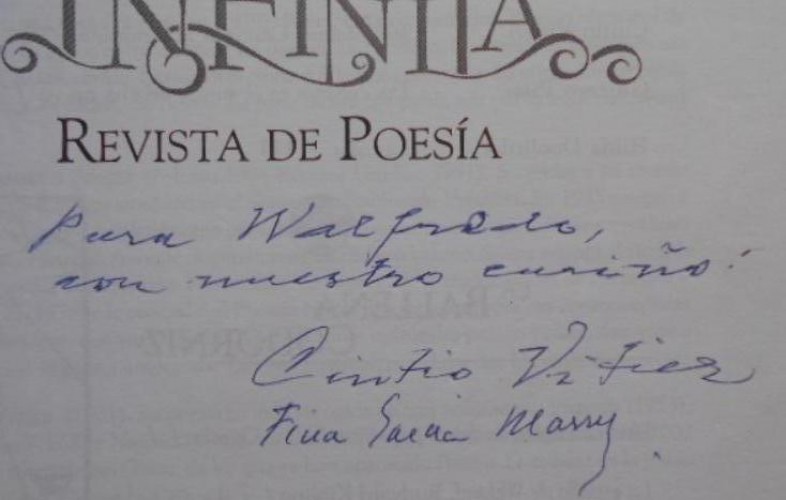 INFINITA
REVISTA DE POESÍA
Para Walfredo,
con nuestro cariño:
Cintio Vitier
Fina García Marruz